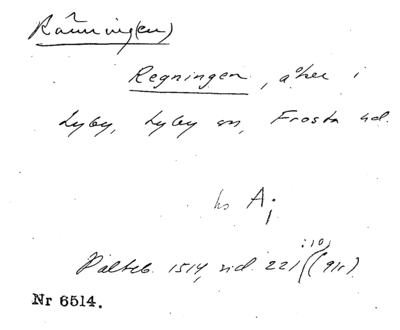 Ränning(en)
Regningen, åker i
Lyby, Lyby sn, Frosta hd.
hs A;
Paltsb. 1514, sid. 221 :10) (91r).
Nr 6514.